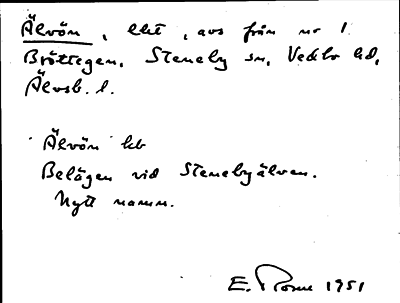 Älvön, lht, avs från nr 1
Bröttegen, Steneby sn, Vedbo hd,
Älvsb. l.
Älvön lb
Belägen vid Stenebyälven.
Nytt namn.
E. 1951